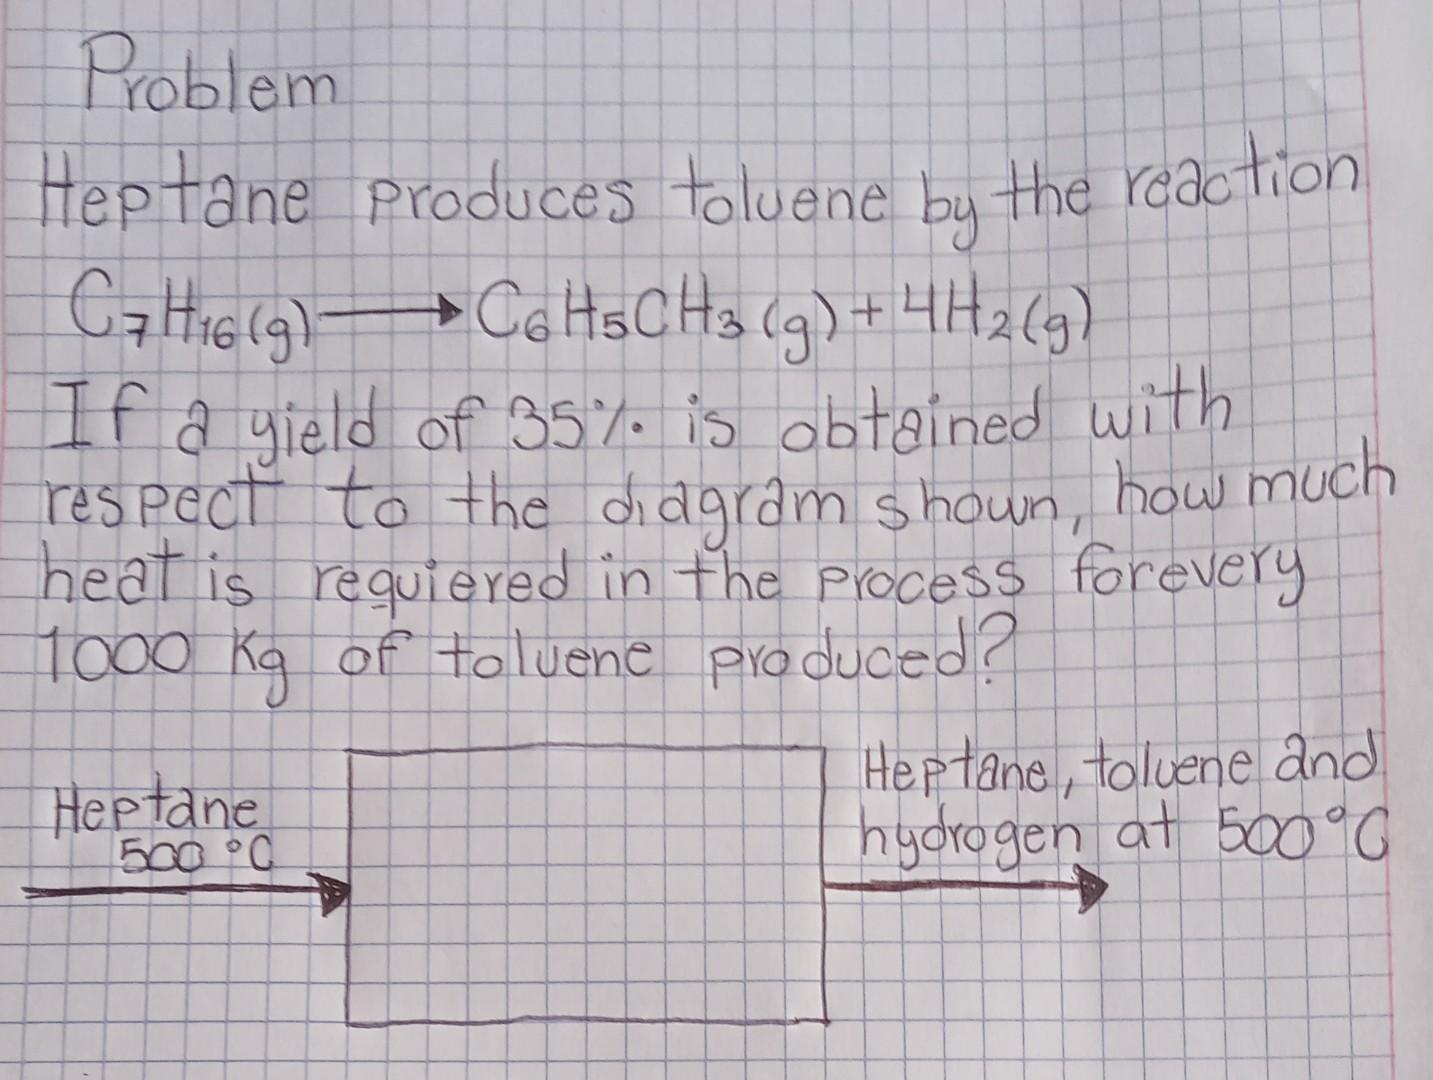 Problem
Heptane produces toluene by the reaction
C7H16(g) → C6H5CH3(g) + 4H2(g)
If a yield of 35% is obtained with
respect to the diagram shown, how much
heat is requiered in the process forevery
1000 Kg of toluene produced?
Heptane
500 °C
Heptane, toluene and
hydrogen at 500°C